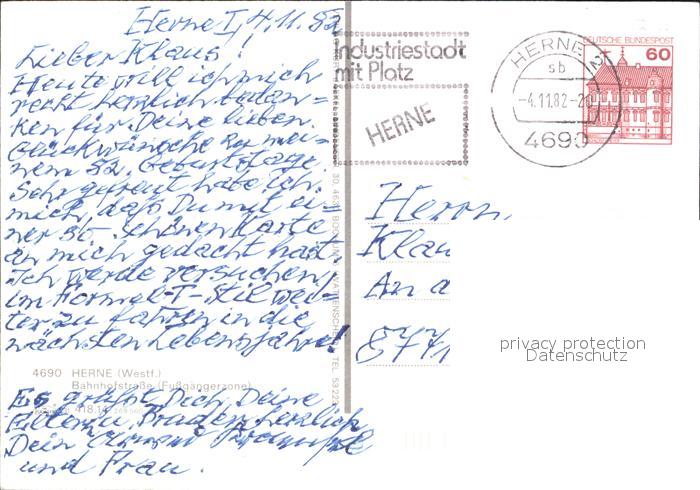 Herne I, 4.11.82
Lieber Klaus!
Heute will ich mich
recht herzlich bedan=
ken für Deine lieben
Glückwünsche zu mei=
nem 52. Geburtstage.
Sehr gefreut habe ich
mich, daß Du mit ei=
ner so schönen Karte
an mich gedacht hast.
Ich werde versuchen,
im Formel-I-Stil wei=
ter zu fahren in die
nächsten Lebensjahre!
4690 HERNE (Westf.)
Bahnhofstraße (Fußgängerzone)
418.14
Es grüßt Dich, Deine
Eltern u. Bruder herzlich
Dein
und Frau.
Industriestadt
mit Platz
HERNE
HERNE 2
sb
-4.11.82-20
4690
DEUTSCHE BUNDESPOST
60
Herrn
Klau
An d
privacy protection
Datenschutz